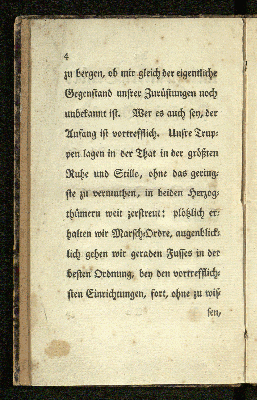 4
zu bergen, ob mir gleich der eigentliche
Gegenstand unsrer Zurüstungen noch
unbekannt ist. Wer es auch sey, der
Anfang ist vortrefflich. Unsre Trup-
pen lagen in der That in der größten
Ruhe und Stille, ohne das gering-
ste zu vermuthen, in beiden Herzog-
thümern weit zerstreut: plötzlich er-
halten wir Marsch-Ordre, augenblick-
lich gehen wir geraden Fusses in der
besten Ordnung, bey den vortrefflich-
sten Einrichtungen, fort, ohne zu wis-
sen,